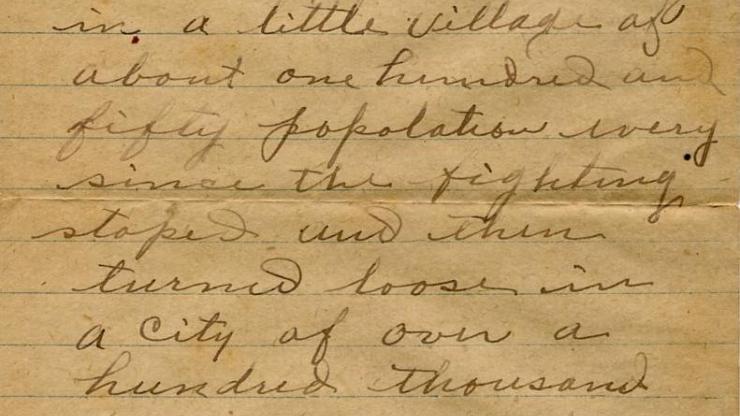 in a little village of
about one hundred and
fifty popolation every
since the fighting
stoped and then
turned loose in
a city of over a
hundred thousand